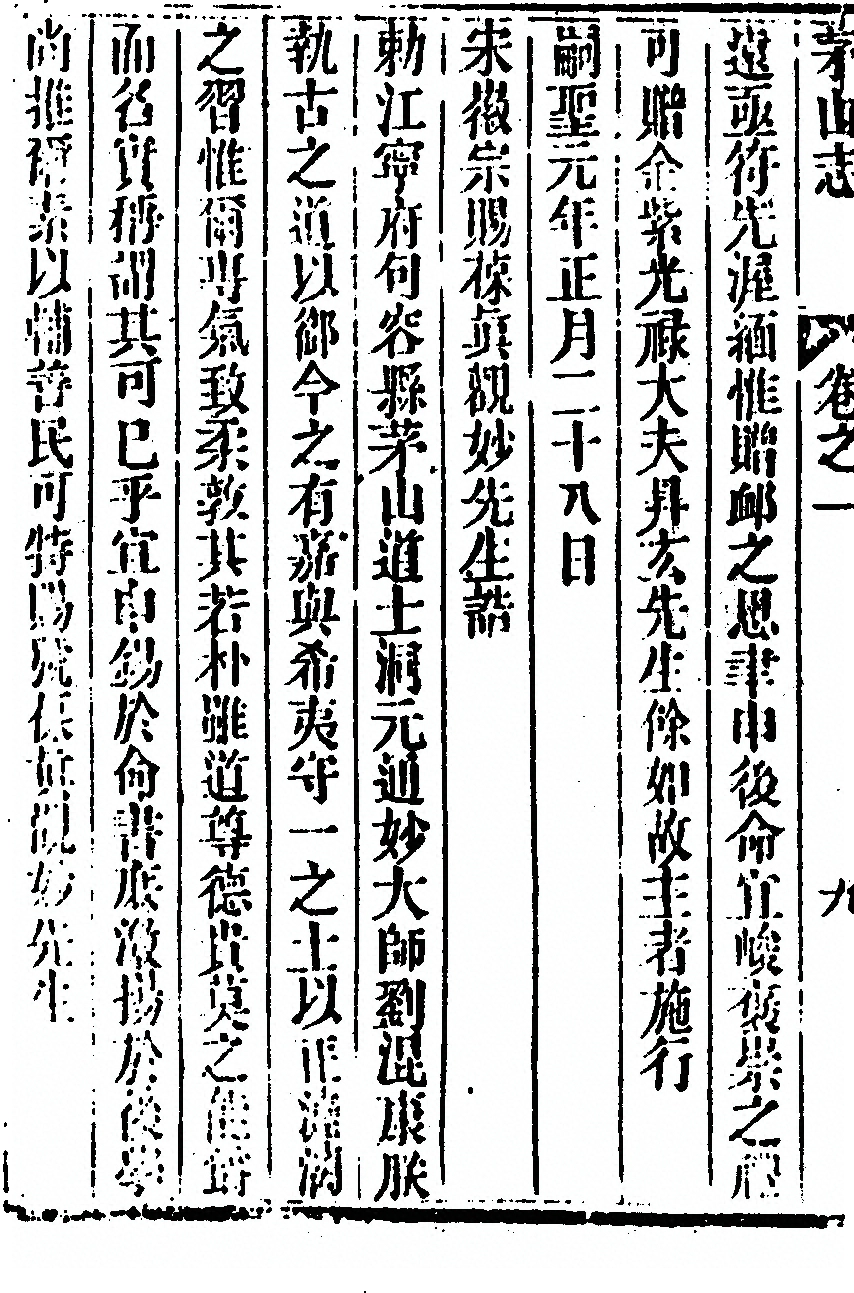 茅山志 卷之一 九
遠亟符先渥緬惟贈卹之恩聿申後命宜峻褒崇之禮
可贈金紫光祿大夫昇玄先生餘如故主者施行
嗣聖元年正月二十八日
宋徽宗賜葆真觀妙先生誥
勅江寧府句容縣茅山道士洞元通妙大師劉混康朕
執古之道以御今之有嘉與希夷守一之士以正澆漓
之習惟爾專氣致柔敦其若朴雖道尊德貴莫之使爵
而名實稱謂其可已乎宜申錫於命書庶激揚於後學
尚推爾素以輔善民可特賜號葆真觀妙先生